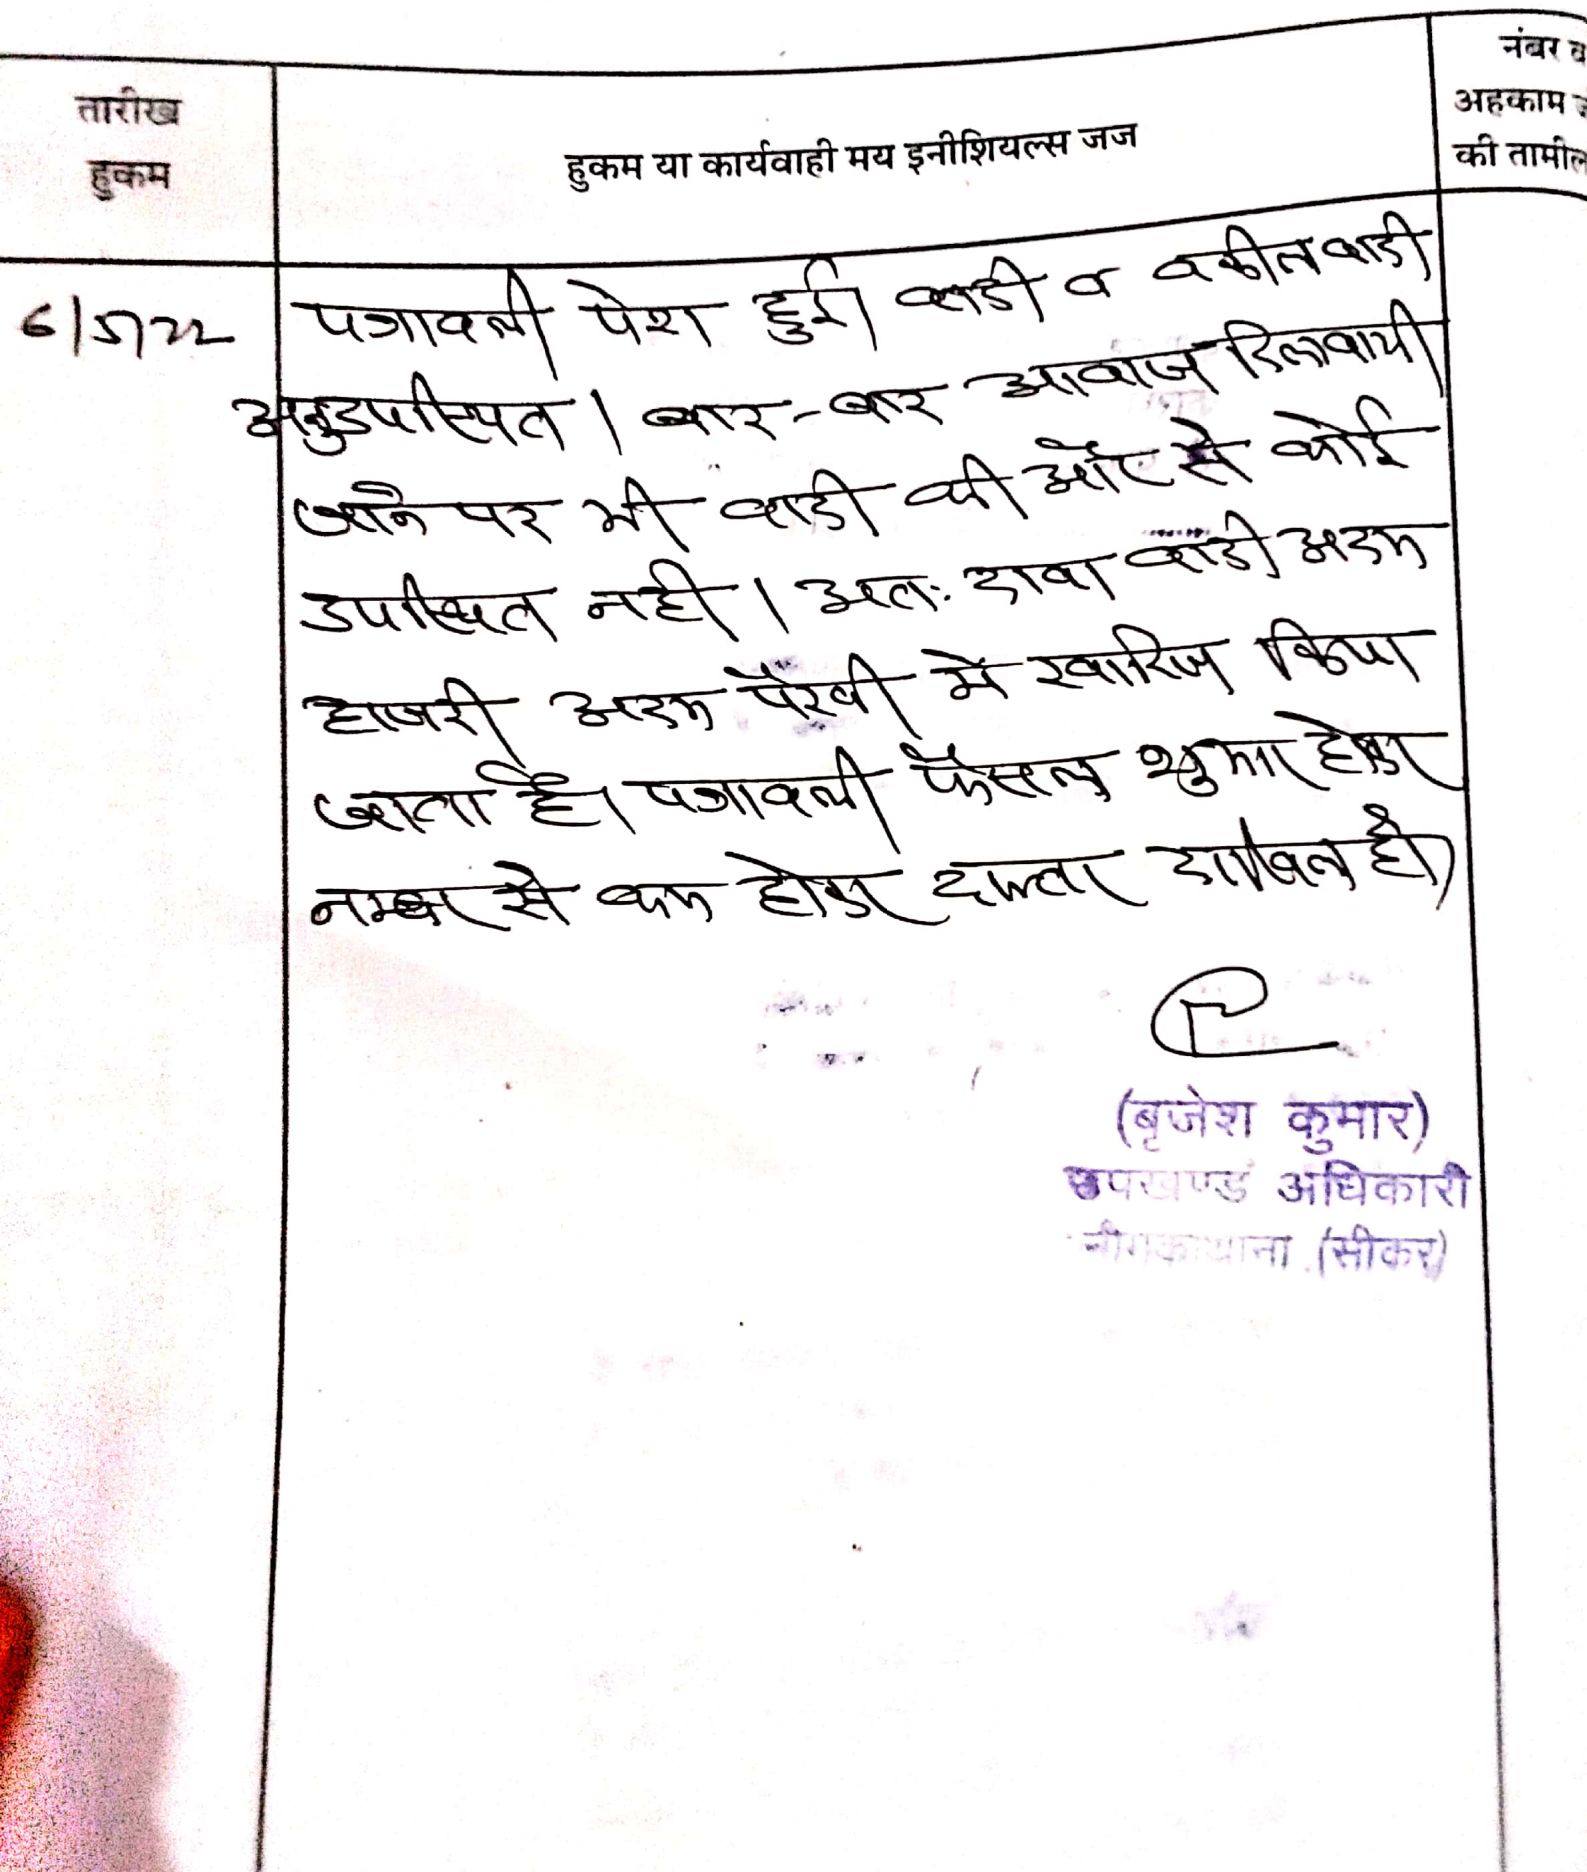 तारीख
हुकम
हुकम या कार्यवाही मय इनीशियल्स जज
नंबर व
अहकाम
की तामील
6/5/22
पत्रावली पेश हुई। वादी व वकील वादी
अनुउपस्थित। बार-बार आवाज दिलवायी
जाने पर भी वादी की ओर से कोई
उपस्थित नही। अतः दावा वादी अदम
हाजरी अदम पैरवी में खारिज किया
जाता है। पत्रावली फैसल शुमार होकर
नम्बर से कम होकर दफ्तर दाखिल हो।
(बृजेश कुमार)
उपखण्ड अधिकारी
नीमकाथाना (सीकर)